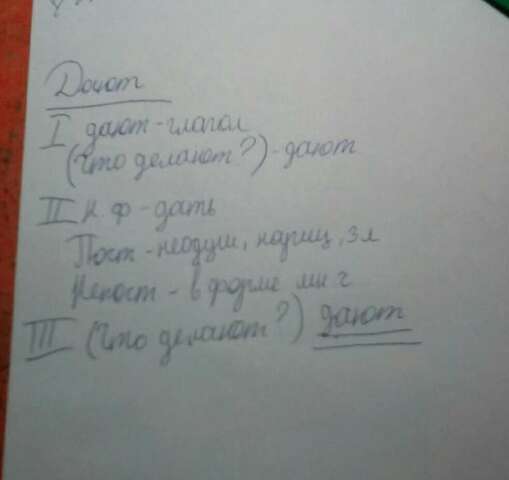 Дают
I дают - глагол
(Что делают?) - дают
II н.ф - дать
Пост - неодуш, нариц, 3 л
Непост - в форме мн ч
III (Что делают?) дают